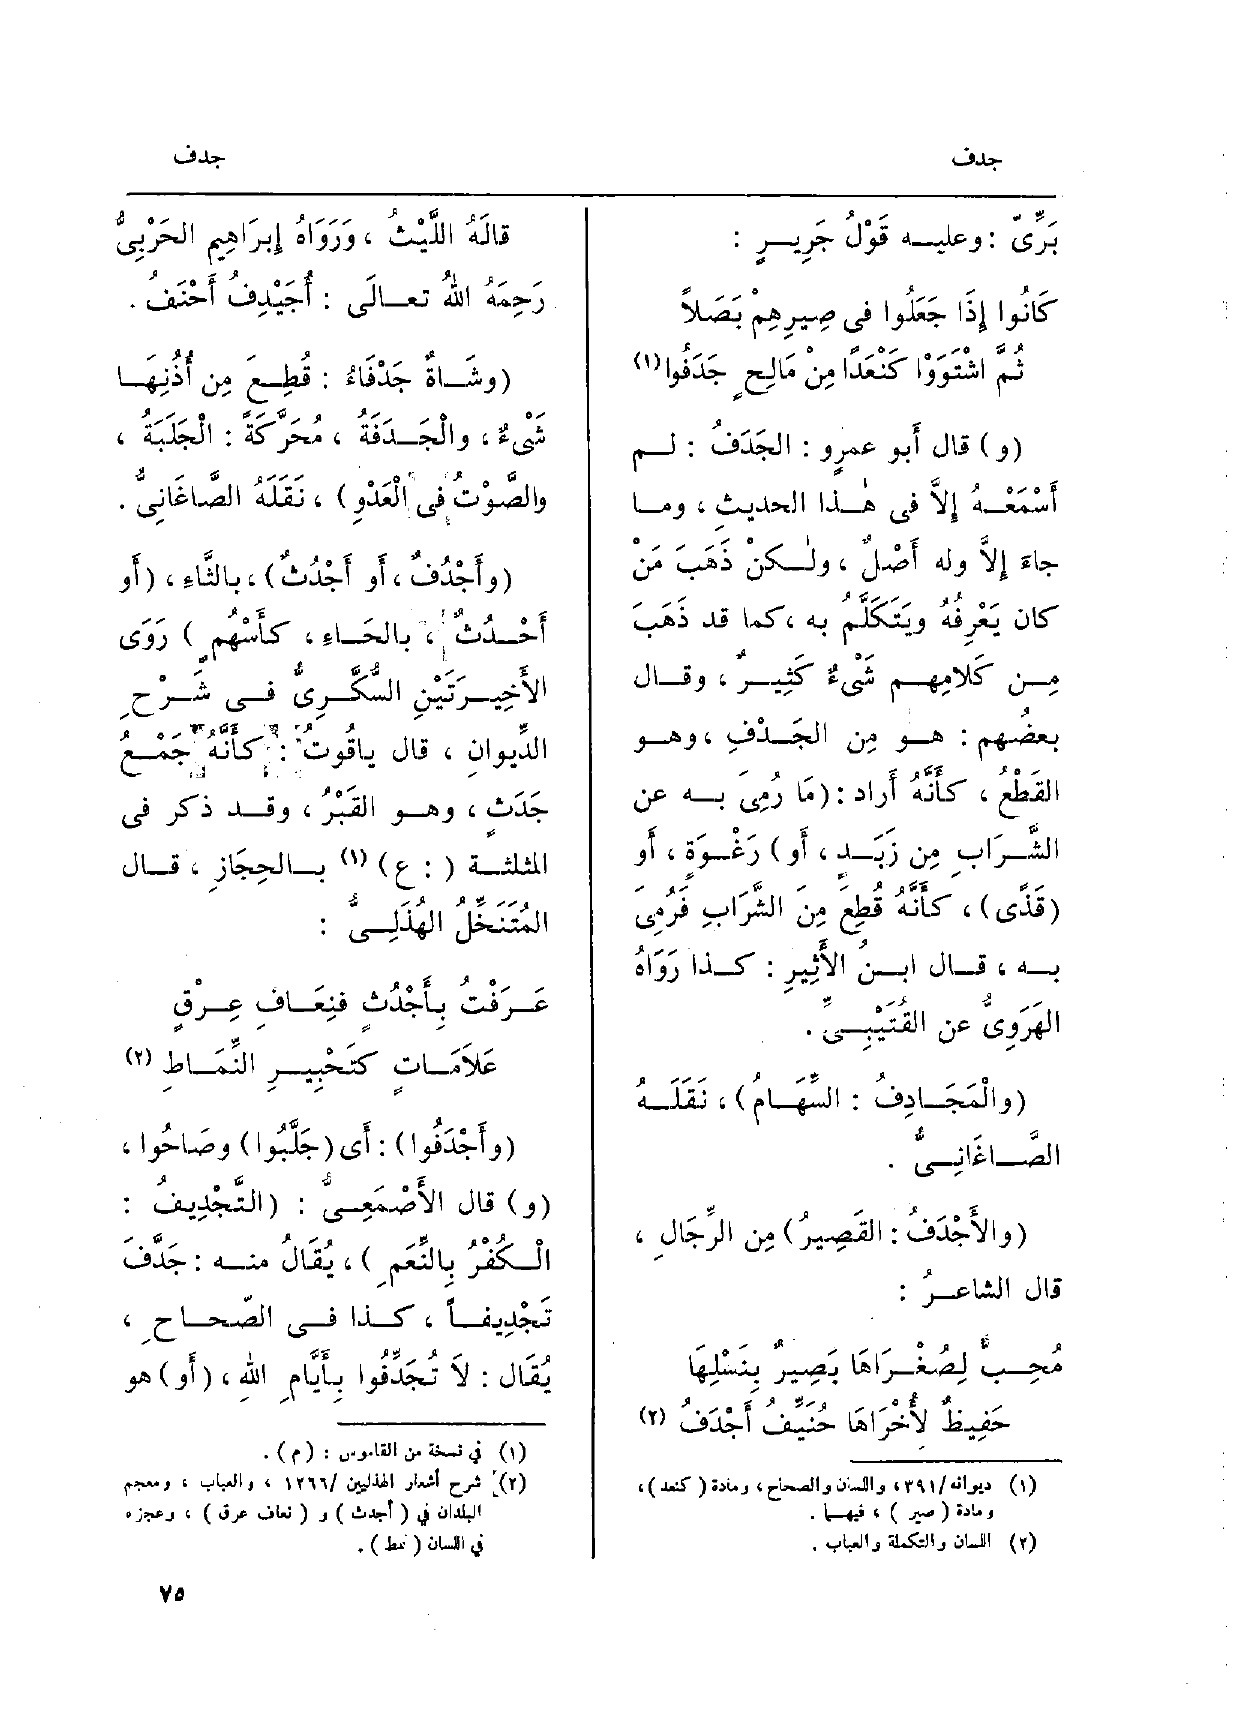 جدف
جدف
بَرِّىّ : وعليـــه قَوْلُ جَرِيــرٍ :
كَانُوا إِذَا جَعَلُوا فى صِيرِهِمْ بَصَلاً
ثُمَّ اشْتَوَوْا كَنْعَدًا مِنْ مَالِحٍ جَدَفُوا(١)
(و) قال أَبو عمرٍو : الجَدَفُ : لــم
أَسْمَعْــهُ إِلاَّ فى هٰــذا الحديثِ ، ومــا
جاءَ إِلاَّ وله أَصْلٌ ، ولٰــكنْ ذَهَبَ مَنْ
كان يَعْرِفُهُ ويَتَكَلَّمُ به ، كما قد ذَهَبَ
مِــن كَلامِهــم شَىْءٌ كَثِيــرٌ ، وقــال
بعضُهم : هــو مِن الجَــدْفِ ، وهــو
القَطْعُ ، كأَنَّهُ أَراد : (مَا رُمِىَ بــه عن
الشَّــرَابِ مِن زَبَــدٍ ، أَو) رَغْــوَةٍ ، أَو
(قَذًى) ، كأَنَّهُ قُطِعَ مِنَ الشَّرَابِ فَرُمِىَ
بــه ، قــال ابــنُ الأَثِيرِ : كــذا رَوَاهُ
الهَرَوِىُّ عن القُتَيْبِــىِّ .
(والْمَجَــادِفُ : السِّهَــامُ) ، نَقَلَــهُ
الصَّــاغَانِــىُّ .
(والأَجْدَفُ : القَصِيرُ) مِن الرِّجَالِ ،
قال الشاعــرُ :
مُحِــبٌّ لِصُغْــرَاهَا بَصِيرٌ بِنَسْلِهَا
حَفِيظٌ لأُخْرَاهَا حُنَيِّفُ أَجْدَفُ (٢)
(١) ديوانه /٣٩١ ، واللسان والصحاح ، ومادة ( كنعد ) ،
ومادة ( صير ) ، فيهــا .
(٢) اللسان والتكملة والعباب .
قالَهُ اللَّيْثُ ، ورَوَاهُ إِبرَاهِيمِ الحَرْبِىُّ
رَحِمَهُ اللهُ تعــالَى : أُجَيْدِفُ أَحْنَفُ .
(وشَــاةٌ جَدْفَاءُ : قُطِــعَ مِن أُذُنِهَــا
شَىْءٌ ، والْجَــدَفَةُ ، مُحَرَّكَةً : الْجَلَبَةُ ،
والصَّوْتُ فى الْعَدْوِ) ، نَقَلَهُ الصَّاغَانِىُّ .
(وأَجْدُفٌ ، أَو أَجْدُثٌ) ، بالثَّاءِ ، (أَو
أَحْــدُثٌ ، بالحَــاءِ ، كأَسْهُمٍ ) رَوَى
الأَخِيــرَتَيْنِ السُّكَّــرِىُّ فــى شَــرْحِ
الدِّيوانِ ، قال ياقُوتُ : كأَنَّهُ جَمْــعُ
جَدَثٍ ، وهــو القَبْرُ ، وقــد ذكر فى
المثلثــة ( : ع) (١) بــالحِجَازِ ، قــال
المُتَنَخِّلُ الهُذَلِــىُّ :
عَــرَفْتُ بِــأَجْدُثٍ فنِعَــافِ عِــرْقٍ
عَلاَمَــاتٍ كتَحْبِيــرِ النِّمَــاطِ (٢)
(وأَجْدَفُوا) : أَى (جَلَّبُوا) وصَاحُوا ،
(و) قال الأَصْمَعِــىُّ : (التَّجْدِيفُ :
الْــكُفْرُ بِالنِّعَمِ ) ، يُقَالُ منــه : جَدَّفَ
تَجْدِيفــاً ، كــذا فــى الصِّحــاحِ ،
يُقال : لاَ تُجَدِّفُوا بِأَيَّامِ اللهِ ، (أَو) هو
(١) فى نسخة من القاموس : (م) .
(٢) شرح أشعار الهذليين /١٢٦٦ ، والعباب ، ومعجم
البلدان فى ( أجدث ) و ( نعاف عرق ) ، وعجزه
فى اللسان ( نمط ) .
٧٥